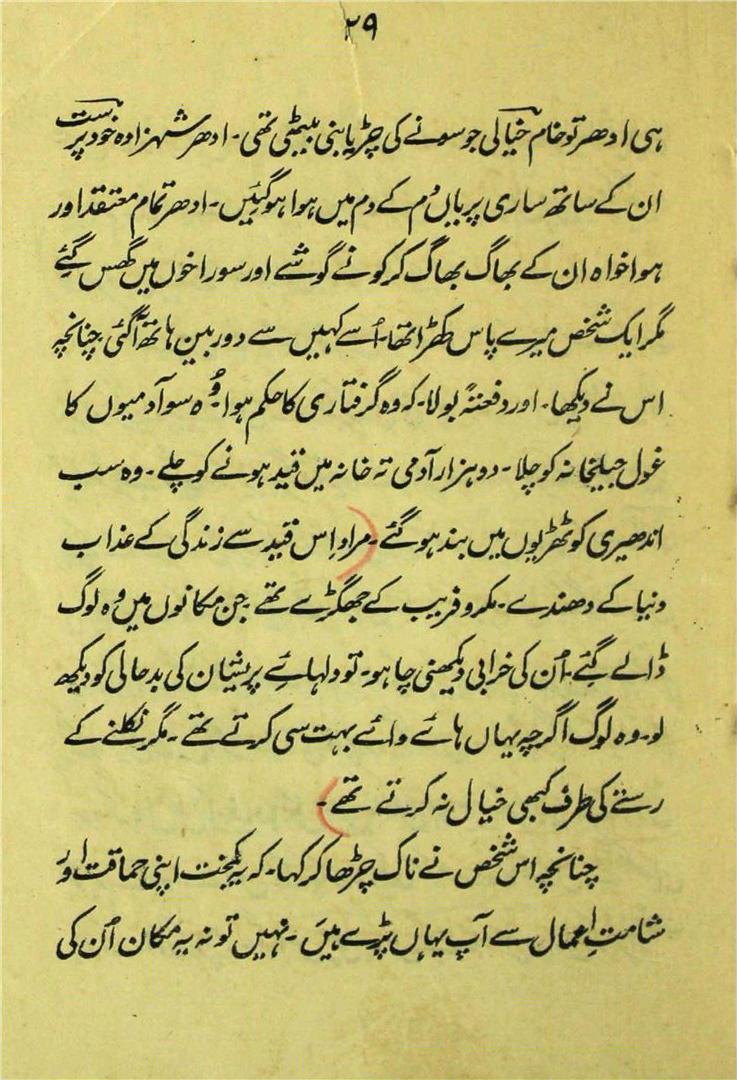 ۲۹
ہی ادھر تو خام خیالی جو سونے کی چڑیا بنی بیٹھی تھی ۔ ادھر شہزادہ خود پرست
ان کے ساتھ ساری پریاں دم کے دم میں ہوا ہوگئیں ۔ ادھر تمام معتقد اور
ہوا خواہ ان کے بھاگ بھاگ کر کونے گوشے اور سوراخوں میں گھس گئے
مگر ایک شخص میرے پاس کھڑا تھا ۔ اُسے کہیں سے دوربین ہاتھ آگئی چنانچہ
اس نے دیکھا ۔ اور دفعتہً بولا ۔ کہ وہ گرفتاری کا حکم ہوا ۔ وُہ سو آدمیوں کا
غول جیلخانہ کو چلا ۔ دو ہزار آدمی تہ خانہ میں قید ہونے کو چلے ۔ وہ سب
اندھیری کوٹھڑیوں میں بند ہوگئے ۔ مراد اِس قید سے زندگی کے عذاب
دنیا کے دھندے ۔ مکر و فریب کے جھگڑے تھے جن مکانوں میں وُہ لوگ
ڈالے گئے ۔ اُن کی خرابی دیکھنی چاہو ۔ تو دلہائے پریشان کی بدحالی کو دیکھ
لو ۔ وہ لوگ اگرچہ یہاں ہائے وائے بہت سی کرتے تھے ۔ مگر نکلنے کے
رستے کی طرف کبھی خیال نہ کرتے تھے ۔
چنانچہ اس شخص نے ناک چڑھا کر کہا ۔ کہ یہ کمبخت اپنی حماقت اور
شامتِ اعمال سے آپ یہاں پڑے ہیں ۔ نہیں تو نہ یہ مکان اُن کی